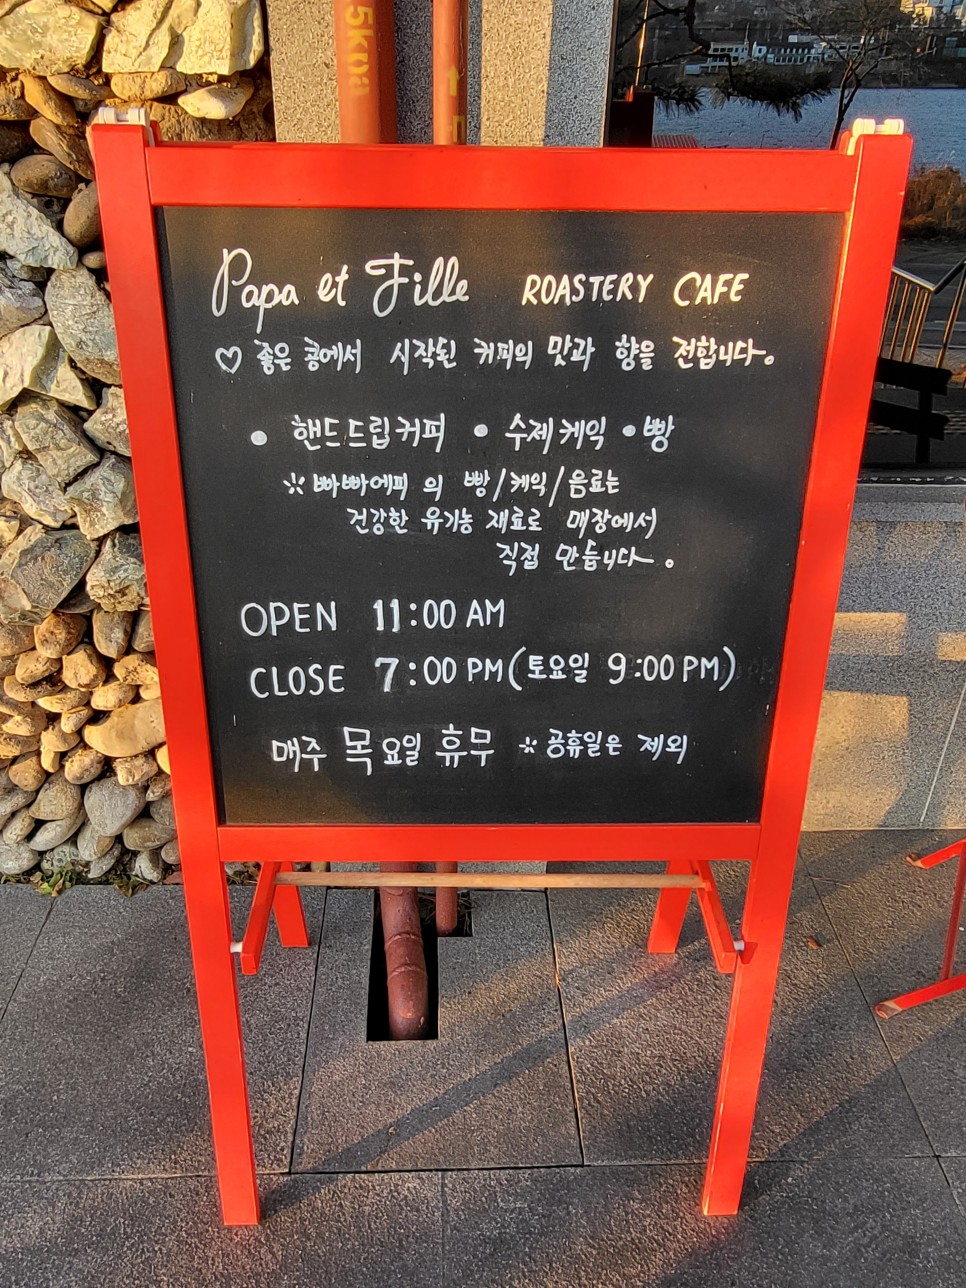 5KQf
E
Papa et Fille ROASTERY CAFE
♡ 좋은 콩에서 시작된 커피의 맛과 향을 전합니다.
• 핸드드립커피 • 수제케익 • 빵
※ 빠빠에피 의 빵/케익/음료는
건강한 유기농 재료로 매장에서
직접 만듭니다.
OPEN 11:00 AM
CLOSE 7:00 PM(토요일 9:00 PM)
매주 목요일 휴무 ※ 공휴일은 제외